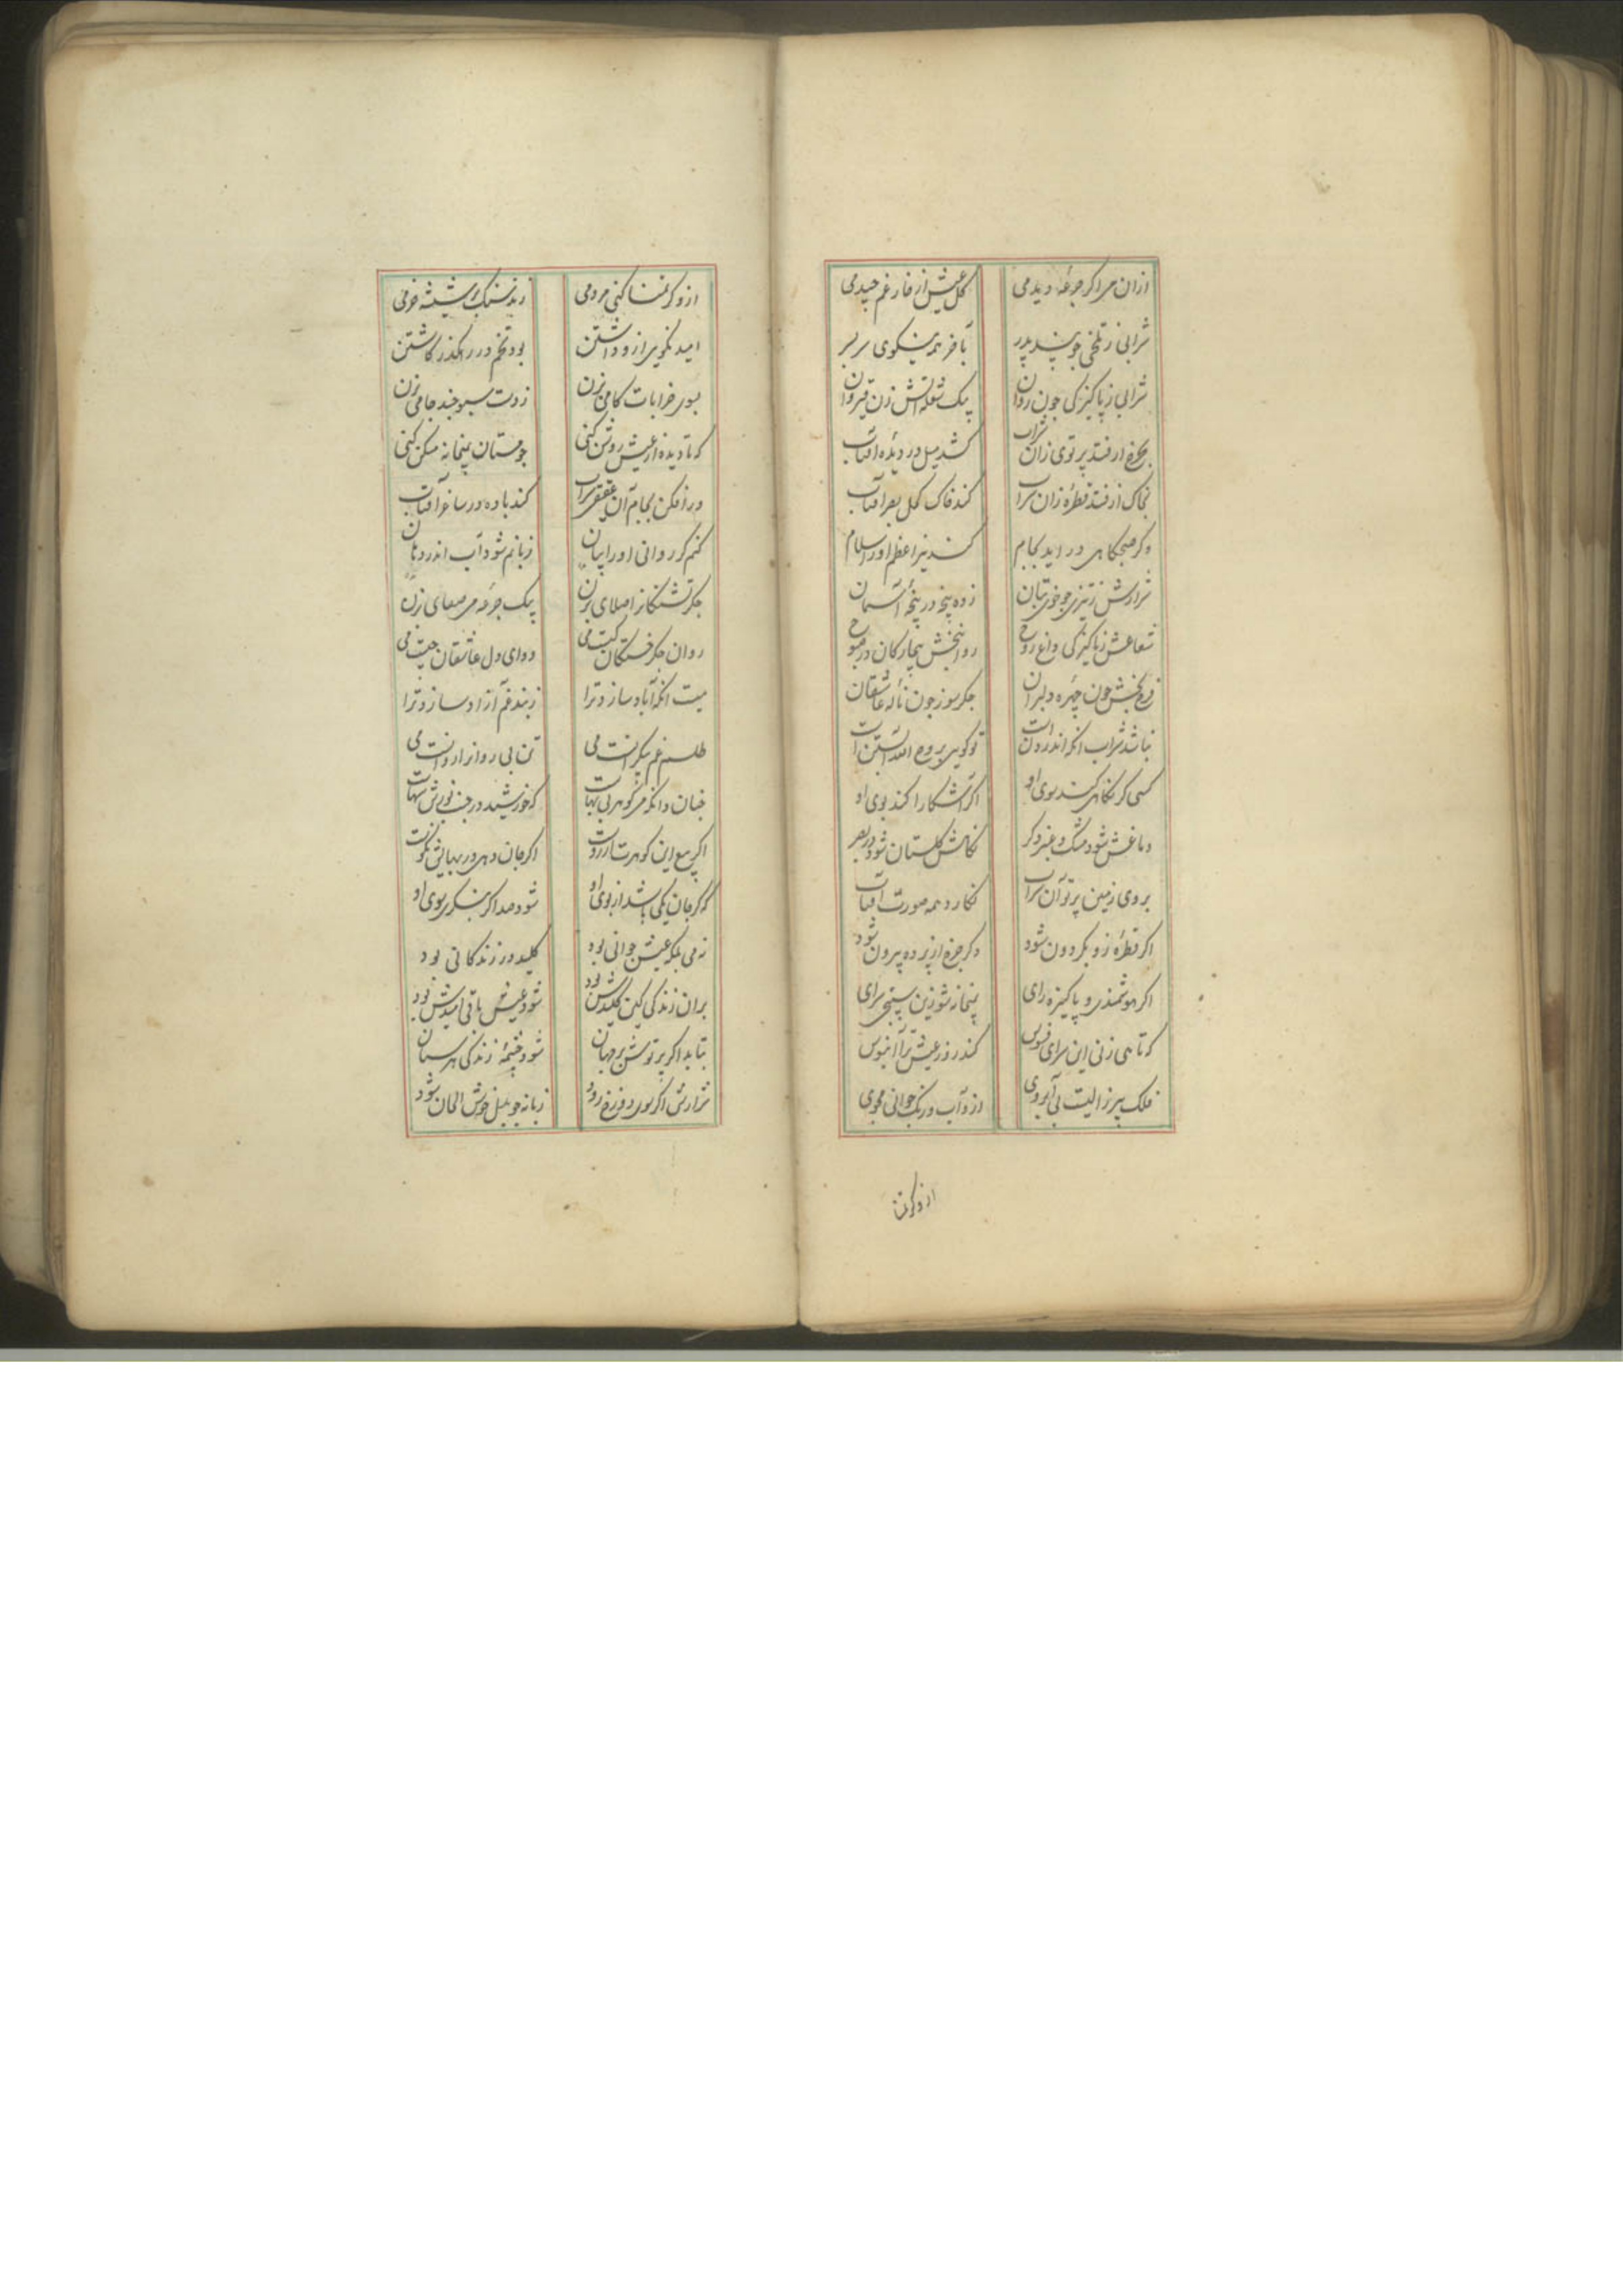 ازان می اکر جرعهٔ دیدمی
کل عیش از خار غم چیدمی
شرابی ز تلخی چو پند پدر
بآخر همه نیکوی سر بسر
شرابی ز پاکیزکی چون روان
یک شعله آتش زن قیروان
بچرخ ار فتد پرتوی زان شراب
کشد میل در دیده آفتاب
بخاک ار فتد قطرهٔ زان شراب
کند خاک کحل بصر آفتاب
وکر صبحکاهی در اید بجام
کند نیر اعظم او را سلام
شرارش ز تیزی چو خوی بتان
زده پنجه در پنجهٔ آسمان
شعاعش ز پاکیزکی داغ روح
روانبخش بیچارکان در صبوح
فرح بخش چون چهره دلبران
جکر سوز چون نالهٔ عاشقان
نباشد شراب انکه اندر دن است
تو کویی بروح الله آبستن است
کسی کر نکاهی کند سوی او
اکر آشکارا کند بوی او
دماغش شود مشک و عنبر دکر
نکاهش کلستان شود در بصر
بروی زمین پرتو آن شراب
نکارد همه صورت آفتاب
اکر قطرهٔ زو بکردون شود
وکر چرخ از پرده بیرون شود
اکر هوشمندی و پاکیزه رای
بمیخانه شو زین سپنجی سرای
که تا می زنی این سرای فسوس
کند زرد عیش ترا آبنوس
فلک پیر زالیست بی آبروی
ازو آب و رنک جوانی مجوی
ازو کر تمنا
ازو کر تمنا کنی مردمی
زند سنک بر شیشه خرمی
امید نکویی ازو داشتن
بود تخم در رهکذر کاشتن
بسوی خرابات کامی بزن
ز دست سبو چند جامی بزن
که تا دیده از عیش روشن کنی
چو مستان بمیخانه مسکن کنی
در افکن بجام آن عقیقی شراب
کند باده در ساغر آفتاب
کنم کر روانی او را بیان
زبانم شود آب اندر دهان
جکر تشنکانرا صلای بزن
یک جرعه می صفای بزن
روان جکر خستکان کیست می
دوای دل عاشقان چیست می
میست انکه آباد سازد ترا
ز بند غم آزاد سازد ترا
طلسم غم پیکرانست می
تن بی روانرا روانست می
چنان دانکه می کوهر بی بهاست
که خورشید در جنب نورش سهاست
اکر بیع این کوهرت آرزوست
اکر جان دهی در بهایش نکوست
که کر جان یکی باشد از بوی او
شود صد اکر بنکری سوی او
نه می بلکه عیش جوانی بود
کلید در زندکانی بود
بران زندکی کین کلیدش بود
شود عیش باقی امیدش بود
بتابد اکر پرتوش بر جهان
شود چشمهٔ زندکی هر سبان
شرارش اکر سوی دوزخ رود
زبانه چو بلبل خوش الحان شود